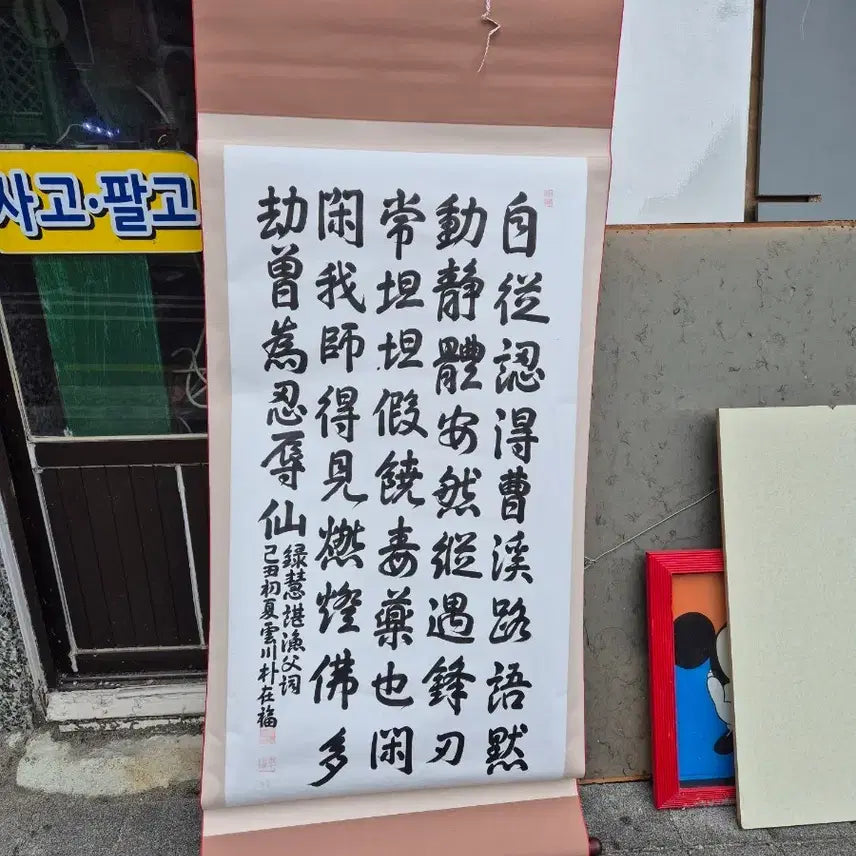 自從認得曹溪路語默
動靜體安然縱遇鋒刃
常坦坦假饒毒藥也閑
閑我師得見燃燈佛多
劫曾為忍辱仙
録慧諶漁父詞
己丑初夏雲川朴在福
사고·팔고